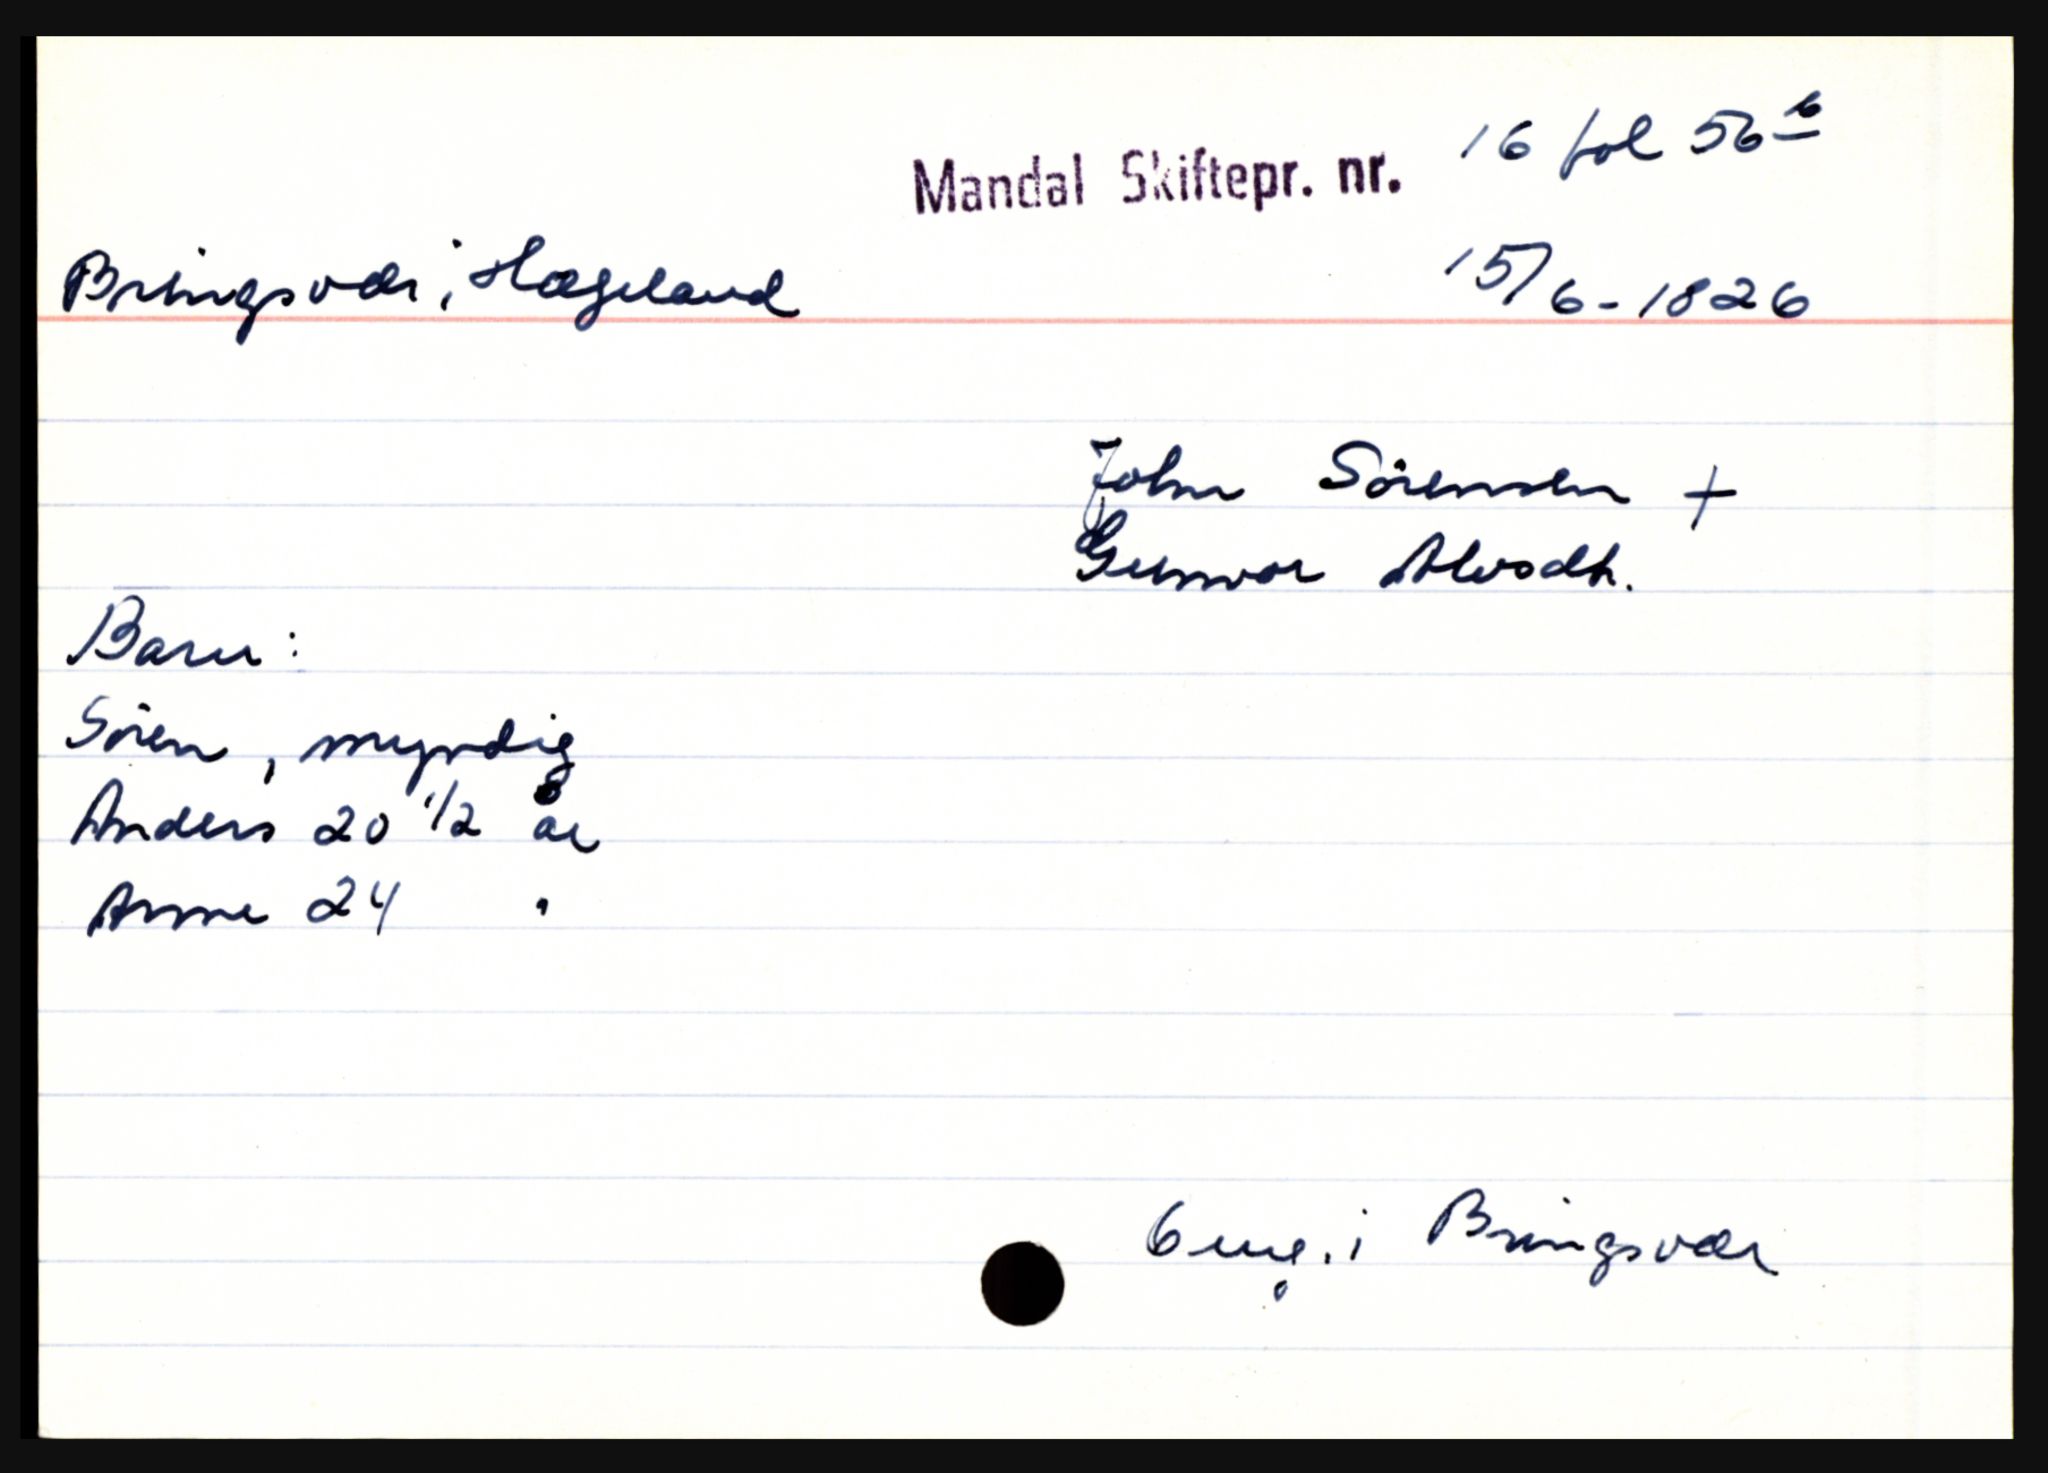 Mandal Skiftepr. nr. 16 fol 56 b
Bringsvær i Hægeland 15/6-1826
John Sörensen +
Gunvor Alvsdtr.
Barn:
Sören, myndig
Anders 20 1/2 år
Anne 24 "
i Bringsvær